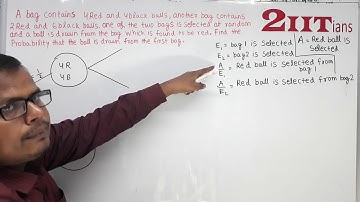 A bag contains 4 Red and 4 black balls, another bag contains
2 Red and 6 black balls. one of the two bags is selected at random
and a ball is drawn from the bag which is found to be red. Find the
Probability that the ball is drawn from the first bag.
2IITians
E₁ = bag 1 is selected
A = Red ball is selected
E₂ = bag 2 is selected
A/E₁ = Red ball is selected from bag 1
A/E₂ = Red ball is selected from bag 2
4R
4B